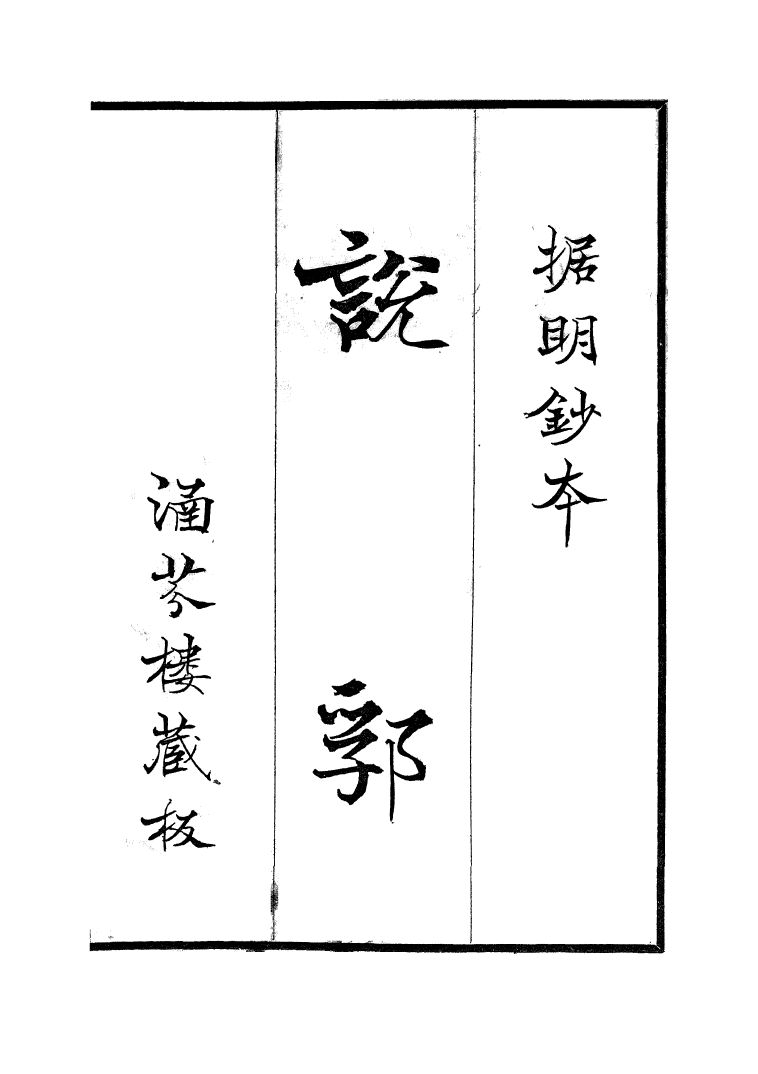 据明鈔本
說郛
涵芬樓藏板